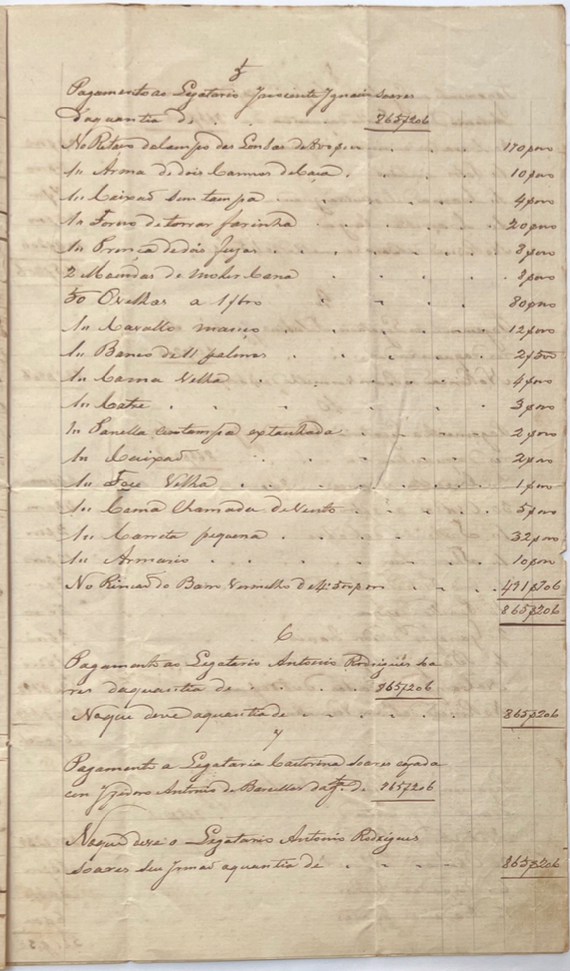 5
Pagamento ao Legatario Innocente Ignacio Soares
daquantia de . . . . . 865$206
No Retavo do Campo das 170$000
1u Arma de dois Cannos de Caça . . . 10$000
1u Caixaõ sem tampa . . . . 4$000
1u Forno de torrar farinha . . . . 20$000
1u de dós . . . . 8$000
2 Moendas de moher Cana . . . 8$000
50 Ovelhas a 1$600 . . . 80$000
1u Cavallo manço . . . . 12$000
1u Banco de 11 palmos . . . . 2$500
1u Cama Velha . . . . 4$000
1u Catre . . . . 3$000
1u Panella com tampa estanhada . . . 2$000
1u Caixaõ . . . . 2$000
1u Foce Velha . . . . 1$000
1u Cama Chamada de Vento . . . . 5$000
1u Carreta pequena . . . . 32$000
1u Armario . . . . 10$000
No Rincaõ do Barro Vermelho de . . . 491$706
865$206
6
Pagamento ao Legatario Antonio Rodrigues Soa
res daquantia de . . . . 865$206
Naque deve aquantia de . . . . 865$206
7
Pagamento a Legataria Castorina Soares cazada
con Izidro Antonio de Barcellos da qta de 865$206
Naque deve o Legatario Antonio Rodrigues
Soares seu Irmaõ aquantia de . . . 865$206